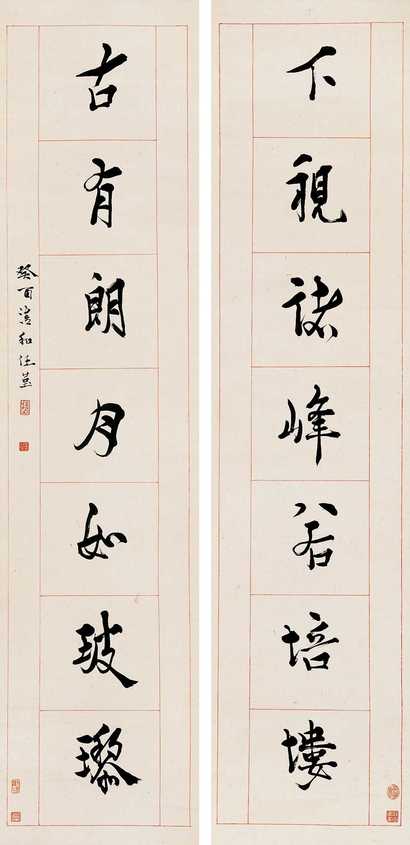 下視諸峰若培塿
古有朗月如玻瓈
癸酉清和